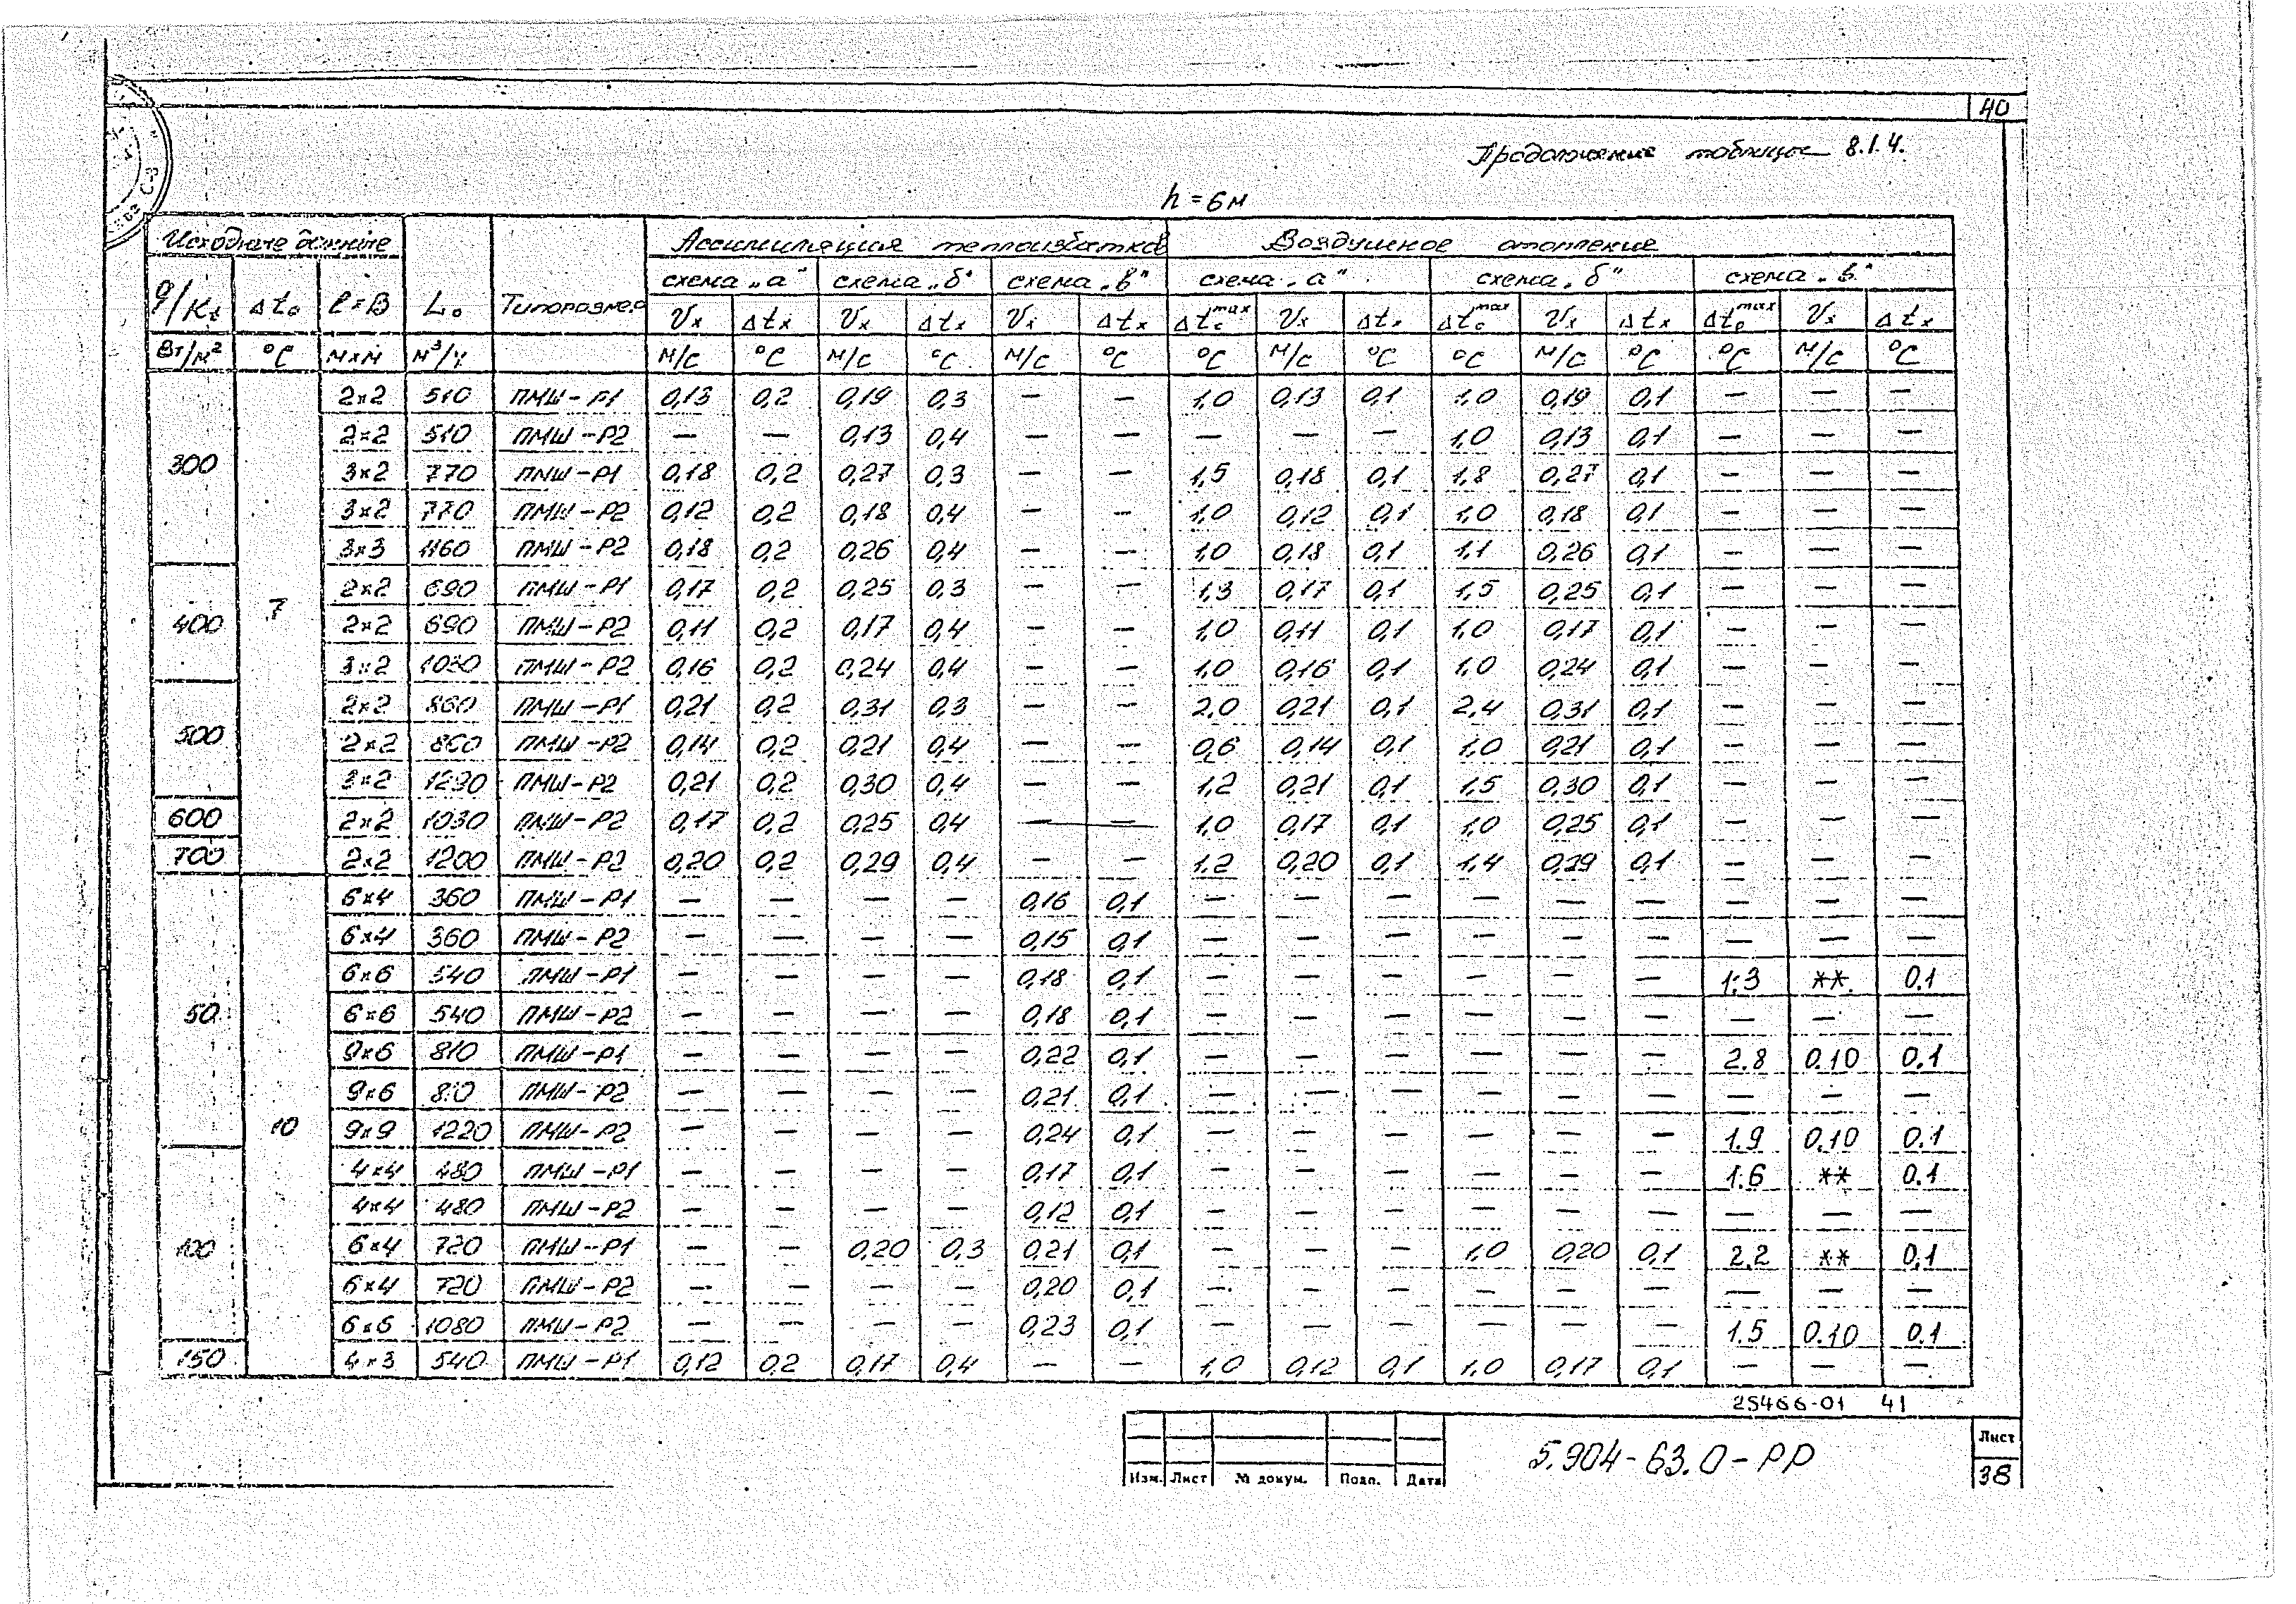 40
Продолжение таблицы 8.1.4.
h = 6м
Исходные данные Ассимиляция теплоизбытков Воздушное отопление
схема „а" схема „б" схема „в" схема „а" схема „б" схема „в"
q/Kt Δto l×B Lo Типоразмер Vx Δtx Vx Δtx Vx Δtx Δto max Vx Δtx Δto max Vx Δtx Δto max Vx Δtx
Вт/м² °C м×м м³/ч м/с °C м/с °C м/с °C °C м/с °C °C м/с °C °C м/с °C
300 7 2×2 510 ПМШ-Р1 0,13 0,2 0,19 0,3 — — 1,0 0,13 0,1 1,0 0,19 0,1 — — —
2×2 510 ПМШ-Р2 — — 0,13 0,4 — — — — — 1,0 0,13 0,1 — — —
3×2 770 ПМШ-Р1 0,18 0,2 0,27 0,3 — — 1,5 0,18 0,1 1,8 0,27 0,1 — — —
3×2 770 ПМШ-Р2 0,12 0,2 0,18 0,4 — — 1,0 0,12 0,1 1,0 0,18 0,1 — — —
3×3 1160 ПМШ-Р2 0,18 0,2 0,26 0,4 — — 1,0 0,18 0,1 1,1 0,26 0,1 — — —
400 2×2 690 ПМШ-Р1 0,17 0,2 0,25 0,3 — — 1,3 0,17 0,1 1,5 0,25 0,1 — — —
2×2 690 ПМШ-Р2 0,11 0,2 0,17 0,4 — — 1,0 0,11 0,1 1,0 0,17 0,1 — — —
3×2 1030 ПМШ-Р2 0,16 0,2 0,24 0,4 — — 1,0 0,16 0,1 1,0 0,24 0,1 — — —
500 2×2 860 ПМШ-Р1 0,21 0,2 0,31 0,3 — — 2,0 0,21 0,1 2,4 0,31 0,1 — — —
2×2 860 ПМШ-Р2 0,14 0,2 0,21 0,4 — — 0,6 0,14 0,1 1,0 0,21 0,1 — — —
3×2 1290 ПМШ-Р2 0,21 0,2 0,30 0,4 — — 1,2 0,21 0,1 1,5 0,30 0,1 — — —
600 2×2 1030 ПМШ-Р2 0,17 0,2 0,25 0,4 — — 1,0 0,17 0,1 1,0 0,25 0,1 — — —
700 2×2 1200 ПМШ-Р2 0,20 0,2 0,29 0,4 — — 1,2 0,20 0,1 1,4 0,29 0,1 — — —
50 10 6×4 360 ПМШ-Р1 — — — — 0,16 0,1 — — — — — — — — —
6×4 360 ПМШ-Р2 — — — — 0,15 0,1 — — — — — — — — —
6×6 540 ПМШ-Р1 — — — — 0,18 0,1 — — — — — — 1.3 ** 0.1
6×6 540 ПМШ-Р2 — — — — 0,18 0,1 — — — — — — — — —
9×6 810 ПМШ-Р1 — — — — 0,22 0,1 — — — — — — 2.8 0.10 0.1
9×6 810 ПМШ-Р2 — — — — 0,21 0,1 — — — — — — — — —
9×9 1220 ПМШ-Р2 — — — — 0,24 0,1 — — — — — — 1.9 0.10 0.1
100 4×4 480 ПМШ-Р1 — — — — 0,17 0,1 — — — — — — 1.6 ** 0.1
4×4 480 ПМШ-Р2 — — — — 0,12 0,1 — — — — — — — — —
6×4 720 ПМШ-Р1 — — 0,20 0,3 0,21 0,1 — — — 1,0 0,20 0,1 2.2 ** 0.1
6×4 720 ПМШ-Р2 — — — — 0,20 0,1 — — — — — — — — —
6×6 1080 ПМШ-Р2 — — — — 0,23 0,1 — — — — — — 1.5 0.10 0.1
150 4×3 540 ПМШ-Р1 0,12 0,2 0,17 0,4 — — 1,0 0,12 0,1 1,0 0,17 0,1 — — —
25466-01 41
Изм. Лист № докум. Подп. Дата
5.904-63.0-РР
Лист
38